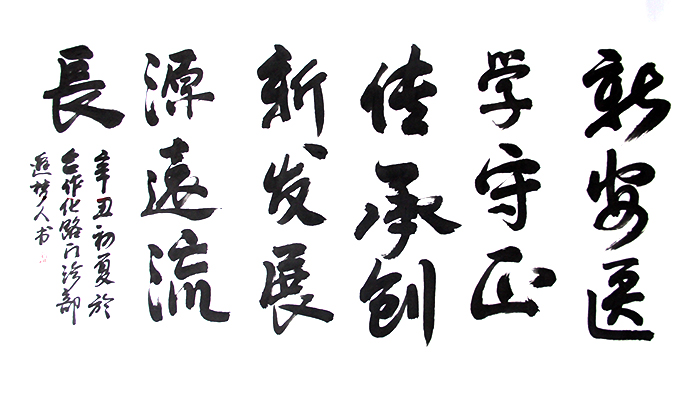 新安医
学守正
传承创
新发展
源遠流
長
辛丑初夏於
合作化路门诊部
逍梦人书